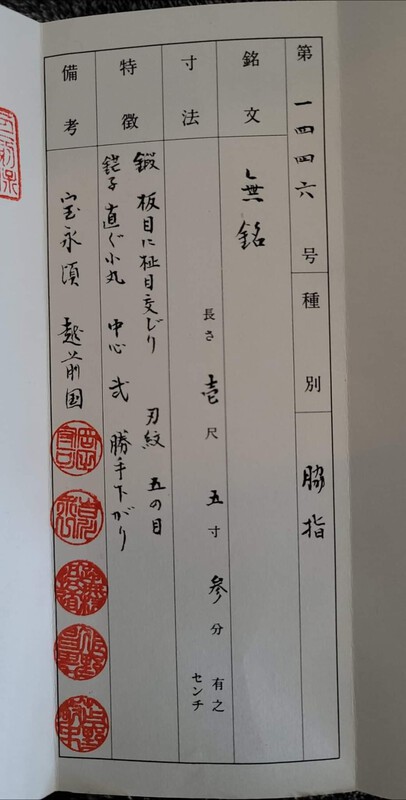 第一四四六号 種別 脇指
銘文 無銘
寸法 長さ 壱尺 五寸 参分 有之 センチ
特徴 鍛 板目に柾目交じり 刃紋 五の目
鋩子 直ぐ小丸 中心 弐 勝手下がり
備考 宝永頃 越前国